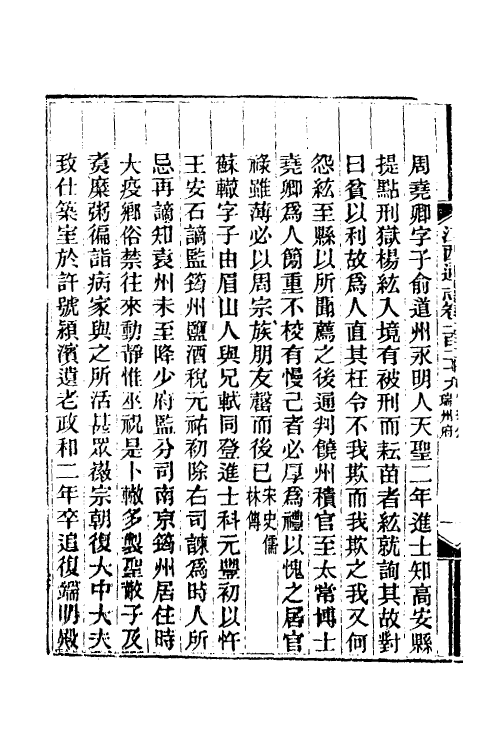 周堯卿字子俞道州永明人天聖二年進士知高安縣
提點刑獄楊紘入境有被刑而耘苗者紘就詢其故對
曰貧以利故為人直其枉令不我欺而我欺之我又何
怨紘至縣以所聞薦之後通判饒州積官至太常博士
堯卿為人簡重不校有慢己者必厚為禮以愧之居官
祿雖薄必以周宗族朋友罄而後已宋史儒林傳
蘇轍字子由眉山人與兄軾同登進士科元豐初以忤
王安石謫監筠州鹽酒稅元祐初除右司諫為時人所
忌再謫知袁州未至降少府監分司南京筠州居住時
大疫鄉俗禁往來動靜惟巫祝是卜轍多製聖散子及
煮糜粥徧詣病家與之所活甚眾徽宗朝復大中大夫
致仕築室於許號潁濱遺老政和二年卒追復端明殿
江西通志卷一百二十九
瑞州府
一